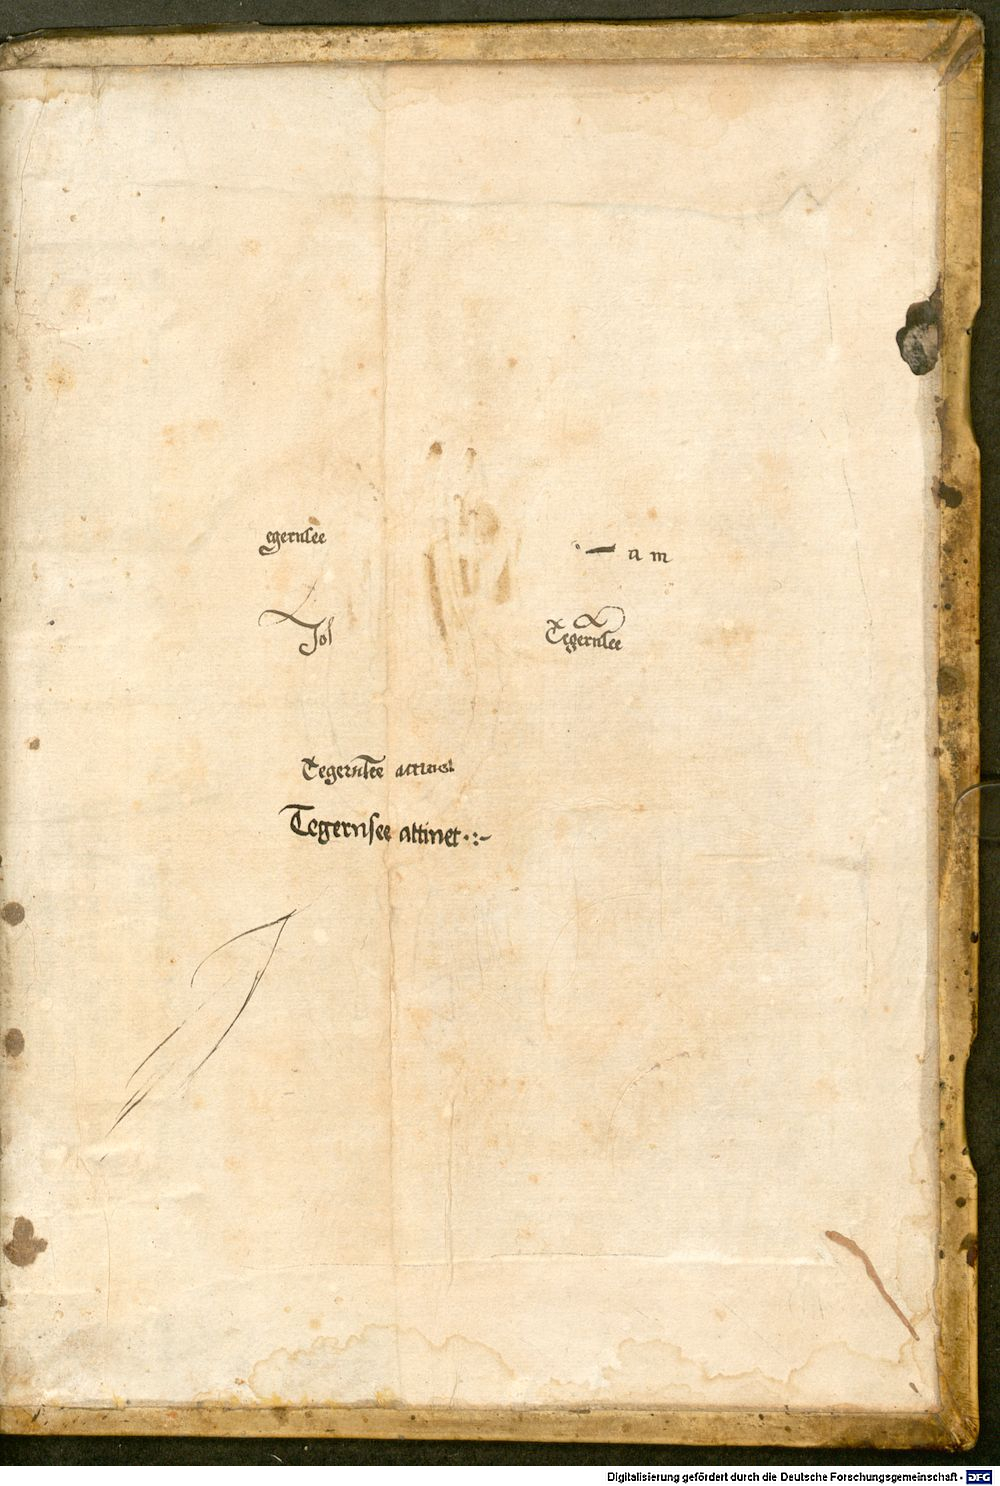 egernsee
a m
Jo
Tegernsee
Tegernsee attinet
Tegernsee attinet·:-
Digitalisierung gefördert durch die Deutsche Forschungsgemeinschaft - DFG